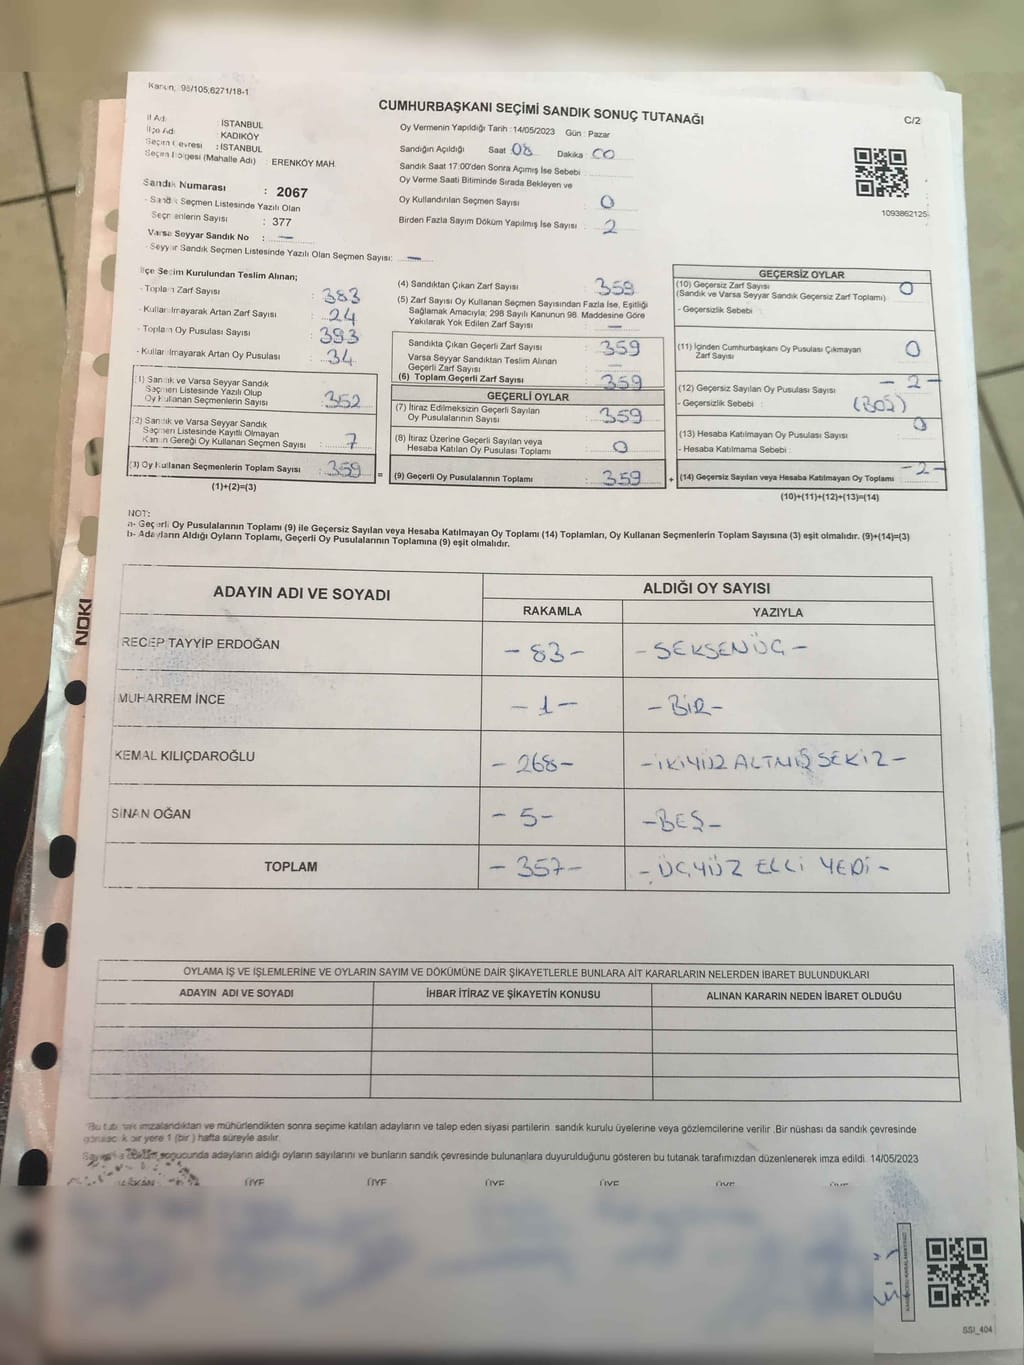 Kanun; 98/105,6271/18-1
CUMHURBAŞKANI SEÇİMİ SANDIK SONUÇ TUTANAĞI
C/2
İl Adı : İSTANBUL
İlçe Adı : KADIKÖY
Seçim Çevresi : İSTANBUL
Seçim Bölgesi (Mahalle Adı) : ERENKÖY MAH.
Sandık Numarası : 2067
- Sandık Seçmen Listesinde Yazılı Olan
Seçmenlerin Sayısı : 377
Varsa Seyyar Sandık No : —
- Seyyar Sandık Seçmen Listesinde Yazılı Olan Seçmen Sayısı: —
Oy Vermenin Yapıldığı Tarih : 14/05/2023 Gün : Pazar
Sandığın Açıldığı Saat 08 Dakika 00
Sandık Saat 17:00'den Sonra Açımış İse Sebebi
Oy Verme Saati Bitiminde Sırada Bekleyen ve
Oy Kullandırılan Seçmen Sayısı : 0
Birden Fazla Sayım Döküm Yapılmış İse Sayısı : 2
1093862125
İlçe Seçim Kurulundan Teslim Alınan;
- Toplam Zarf Sayısı : 383
- Kullanılmayarak Artan Zarf Sayısı : 24
- Toplam Oy Pusulası Sayısı : 393
- Kullanılmayarak Artan Oy Pusulası : 34
(1) Sandık ve Varsa Seyyar Sandık
Seçmen Listesinde Yazılı Olup
Oy Kullanan Seçmenlerin Sayısı : 352
(2) Sandık ve Varsa Seyyar Sandık
Seçmen Listesinde Kayıtlı Olmayan
Kanun Gereği Oy Kullanan Seçmen Sayısı : 7
(3) Oy Kullanan Seçmenlerin Toplam Sayısı : 359 =
(1)+(2)=(3)
(4) Sandıktan Çıkan Zarf Sayısı : 359
(5) Zarf Sayısı Oy Kullanan Seçmen Sayısından Fazla İse, Eşitliği
Sağlamak Amacıyla; 298 Sayılı Kanunun 98. Maddesine Göre
Yakılarak Yok Edilen Zarf Sayısı : —
Sandıkta Çıkan Geçerli Zarf Sayısı : 359
Varsa Seyyar Sandıktan Teslim Alınan
Geçerli Zarf Sayısı : —
(6) Toplam Geçerli Zarf Sayısı : 359
GEÇERLİ OYLAR
(7) İtiraz Edilmeksizin Geçerli Sayılan
Oy Pusulalarının Sayısı : 359
(8) İtiraz Üzerine Geçerli Sayılan veya
Hesaba Katılan Oy Pusulası Toplamı : 0
(9) Geçerli Oy Pusulalarının Toplamı : 359 +
GEÇERSİZ OYLAR
(10) Geçersiz Zarf Sayısı : 0
(Sandık ve Varsa Seyyar Sandık Geçersiz Zarf Toplamı)
- Geçersizlik Sebebi :
(11) İçinden Cumhurbaşkanı Oy Pusulası Çıkmayan
Zarf Sayısı : 0
(12) Geçersiz Sayılan Oy Pusulası Sayısı : - 2 -
- Geçersizlik Sebebi : (BOŞ)
(13) Hesaba Katılmayan Oy Pusulası Sayısı : 0
- Hesaba Katılmama Sebebi :
(14) Geçersiz Sayılan veya Hesaba Katılmayan Oy Toplamı - 2 -
(10)+(11)+(12)+(13)=(14)
NOT:
a- Geçerli Oy Pusulalarının Toplamı (9) ile Geçersiz Sayılan veya Hesaba Katılmayan Oy Toplamı (14) Toplamları, Oy Kullanan Seçmenlerin Toplam Sayısına (3) eşit olmalıdır. (9)+(14)=(3)
b- Adayların Aldığı Oyların Toplamı, Geçerli Oy Pusulalarının Toplamına (9) eşit olmalıdır.
ADAYIN ADI VE SOYADI
ALDIĞI OY SAYISI
RAKAMLA YAZIYLA
RECEP TAYYİP ERDOĞAN - 83 - - SEKSENÜÇ -
MUHARREM İNCE - 1 - - BİR -
KEMAL KILIÇDAROĞLU - 268 - - İKİYÜZ ALTMIŞ SEKİZ -
SİNAN OĞAN - 5 - - BEŞ -
TOPLAM - 357 - - ÜÇYÜZ ELLİ YEDİ -
OYLAMA İŞ VE İŞLEMLERİNE VE OYLARIN SAYIM VE DÖKÜMÜNE DAİR ŞİKAYETLERLE BUNLARA AİT KARARLARIN NELERDEN İBARET BULUNDUKLARI
ADAYIN ADI VE SOYADI İHBAR İTİRAZ VE ŞİKAYETİN KONUSU ALINAN KARARIN NEDEN İBARET OLDUĞU
*Bu tutanak imzalandıktan ve mühürlendikten sonra seçime katılan adayların ve talep eden siyasi partilerin sandık kurulu üyelerine veya gözlemcilerine verilir .Bir nüshası da sandık çevresinde
görülecek bir yere 1 (bir ) hafta süreyle asılır.
Sayım ve döküm sonucunda adayların aldığı oyların sayılarını ve bunların sandık çevresinde bulunanlara duyurulduğunu gösteren bu tutanak tarafımızdan düzenlenerek imza edildi. 14/05/2023
BAŞKAN ÜYE ÜYE ÜYE ÜYE ÜYE ÜYE
NOKI
SSI_404